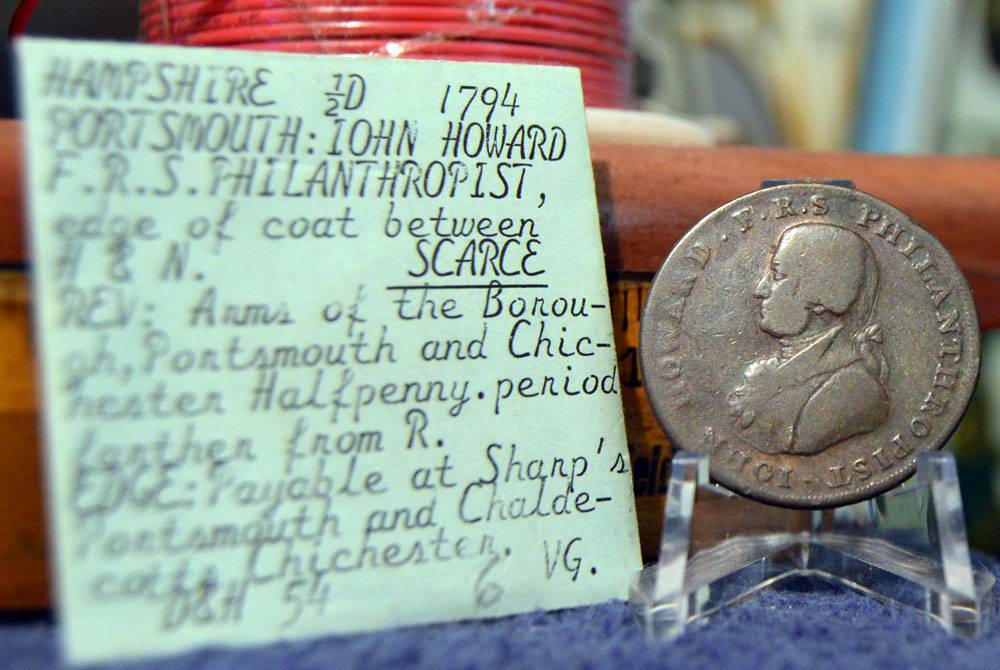 HAMPSHIRE ½D 1794
PORTSMOUTH: IOHN HOWARD
F.R.S. PHILANTHROPIST,
edge of coat between
H & N. SCARCE
REV: Arms of the Borou-
gh, Portsmouth and Chic-
hester Halfpenny. period
farther from R.
EDGE: Payable at Sharp's
Portsmouth and Chalde-
cotts Chichester.
D&H 54 6 VG.
IOHN HOWARD . F.R.S PHILANTHROPIST .